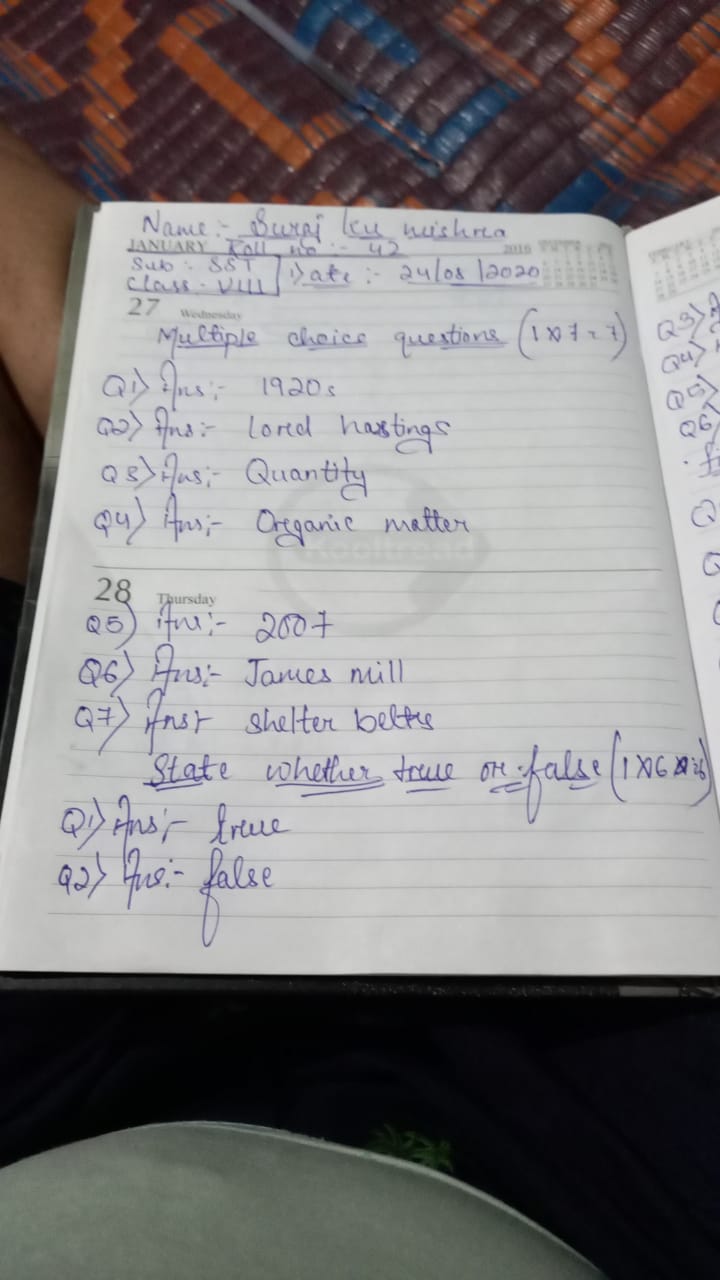 Name:- Suraj ku mishra
JANUARY Roll no :- 42 2016
Sub :- SST Date :- 24/08/2020
Class - VIII
27 Wednesday
Multiple choice questions (1×7=7)
Q1) Ans:- 1920s
Q2) Ans:- Lored hastings
Q3) Ans:- Quantity
Q4) Ans:- Oreganic matter
28 Thursday
Q5) Ans:- 2007
Q6) Ans:- James mill
Q7) Ans:- shelter belts
State whether true or false (1×6
Q1) Ans:- true
Q2) Ans:- false
Q3)
Q4)
Q5)
Q6)